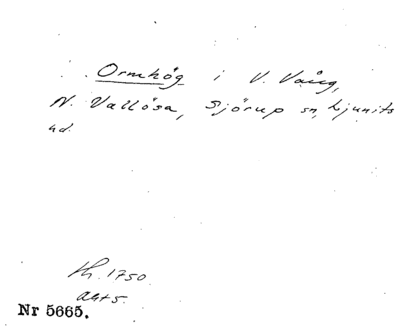 Ormhög i V. Vång,
N. Vallösa, Sjörup sn, Ljunits
hd.
Kh. 1750
Akt 5.
Nr 5665.